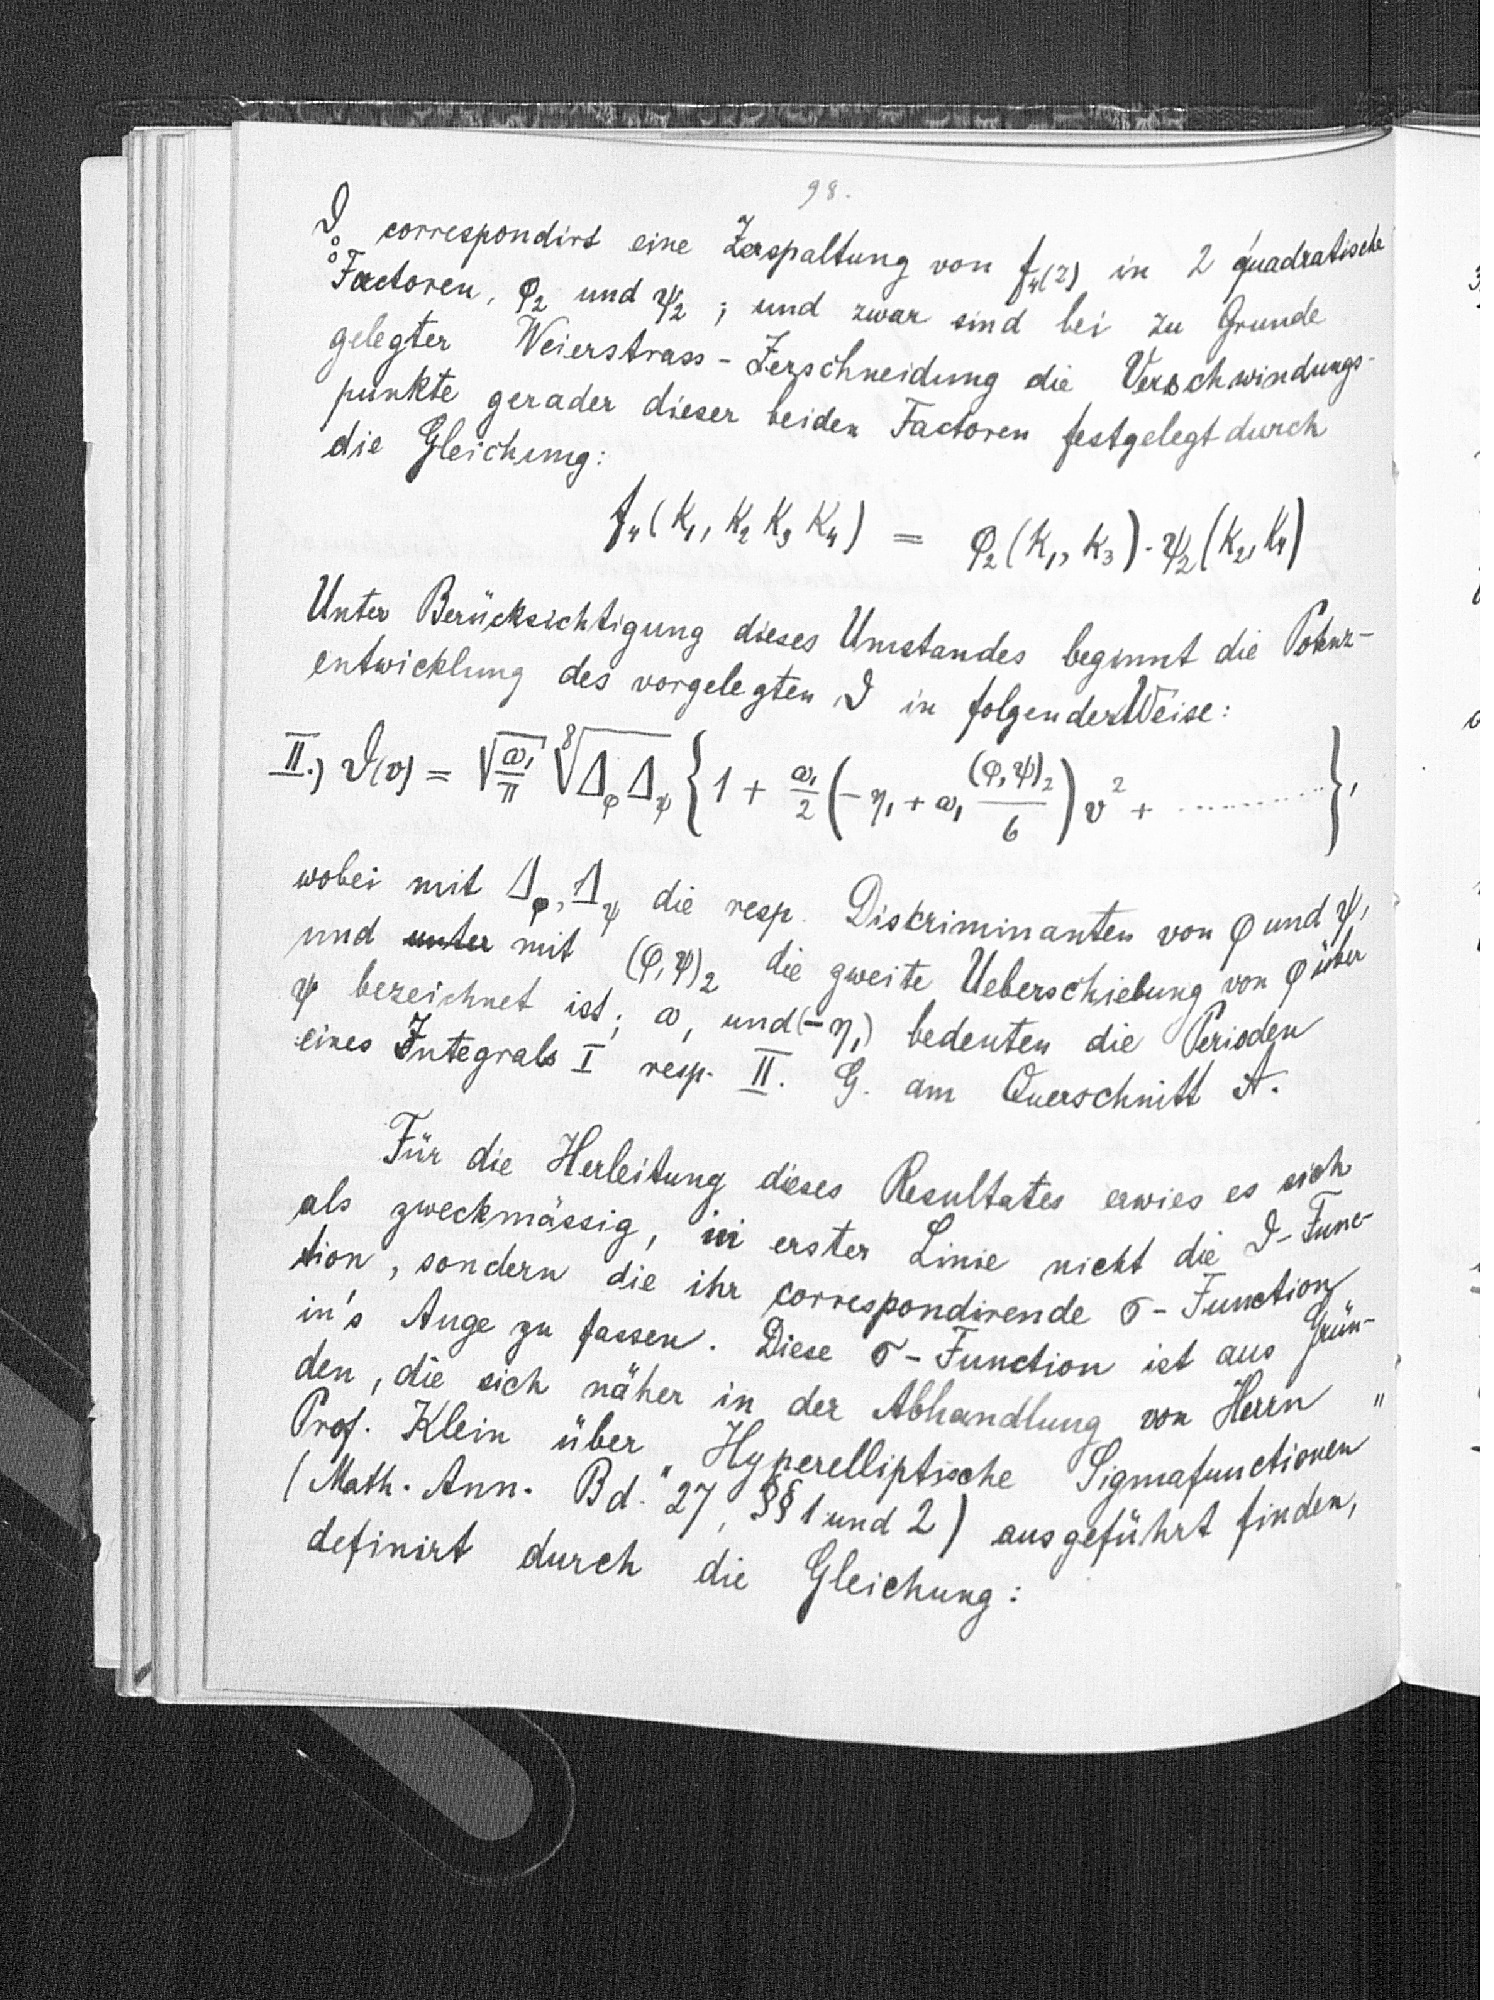 98.
ϑ correspondirt eine Zerspaltung von f₄(z) in 2 quadratische
Factoren, φ₂ und ψ₂; und zwar sind bei zu Grunde
gelegter Weierstrass-Zerschneidung die Verschwindungs-
punkte gerader dieser beiden Factoren festgelegt durch
die Gleichung:
f₄(k₁, k₂ k₃ k₄) = φ₂(k₁, k₃) · ψ₂(k₂, k₄)
Unter Berücksichtigung dieses Umstandes beginnt die Potenz-
entwicklung des vorgelegten ϑ in folgender Weise:
II.) ϑ(v) = √(ω₁/π) ⁸√(Δφ Δψ) {1 + ω₁/2 (−η₁ + ω₁ (φ,ψ)₂/6) v² + ..........},
wobei mit Δφ, Δψ die resp. Diskriminanten von φ und ψ,
und unter mit (φ,ψ)₂ die zweite Ueberschiebung von φ über
ψ bezeichnet ist; ω₁ und (−η₁) bedeuten die Perioden
eines Integrals I resp. II. G. am Querschnitt A.
Für die Herleitung dieses Resultates erwies es sich
als zweckmässig, in erster Linie nicht die ϑ-Func-
tion, sondern die ihr correspondirende σ-Function
in's Auge zu fassen. Diese σ-Function ist aus Grün-
den, die sich näher in der Abhandlung von Herrn
Prof. Klein über "Hyperelliptische Sigmafunctionen"
(Math. Ann. Bd. 27, §§ 1 und 2) ausgeführt finden,
definirt durch die Gleichung: